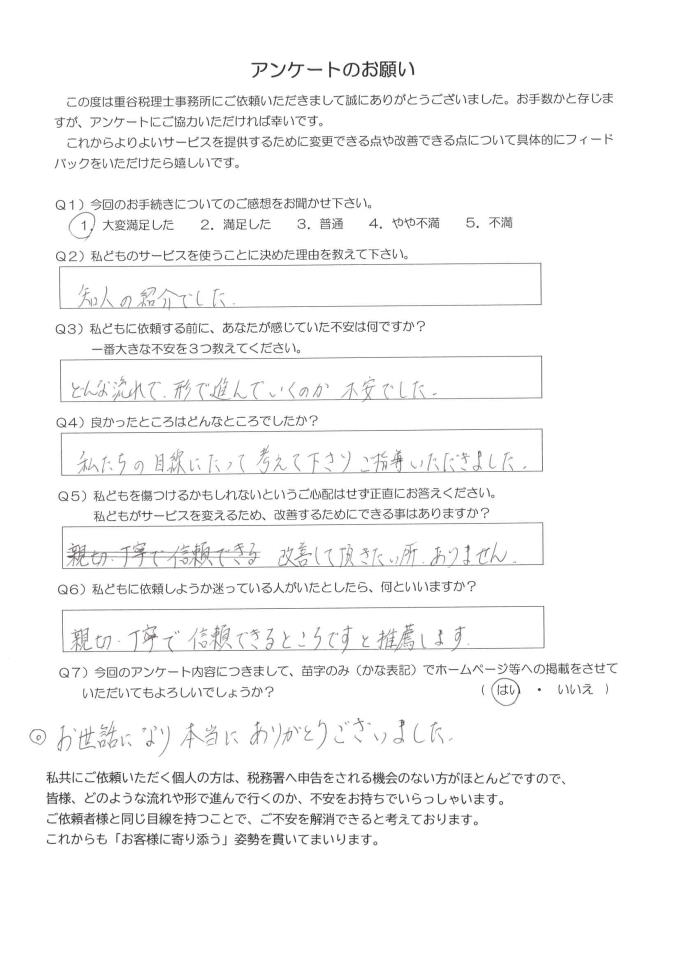 アンケートのお願い
この度は重谷税理士事務所にご依頼いただきまして誠にありがとうございました。お手数かと存じま
すが、アンケートにご協力いただければ幸いです。
これからよりよいサービスを提供するために変更できる点や改善できる点について具体的にフィード
バックをいただけたら嬉しいです。
Q1）今回のお手続きについてのご感想をお聞かせ下さい。
1．大変満足した　2．満足した　3．普通　4．やや不満　5．不満
Q2）私どものサービスを使うことに決めた理由を教えて下さい。
知人の紹介でした.
Q3）私どもに依頼する前に、あなたが感じていた不安は何ですか？
一番大きな不安を3つ教えてください。
どんな流れで、形で進んでいくのか 不安でした.
Q4）良かったところはどんなところでしたか？
私たちの目線にたって 考えて下さり ご指導いただきました.
Q5）私どもを傷つけるかもしれないというご心配はせず正直にお答えください。
私どもがサービスを変えるため、改善するためにできる事はありますか？
親切・丁寧で信頼できる 改善して頂きたい所、ありません.
Q6）私どもに依頼しようか迷っている人がいたとしたら、何といいますか？
親切・丁寧で 信頼できるところですと推薦します.
Q7）今回のアンケート内容につきまして、苗字のみ（かな表記）でホームページ等への掲載をさせて
いただいてもよろしいでしょうか？　（ はい ・ いいえ ）
◎ お世話になり 本当に ありがとうございました.
私共にご依頼いただく個人の方は、税務署へ申告をされる機会のない方がほとんどですので、
皆様、どのような流れや形で進んで行くのか、不安をお持ちでいらっしゃいます。
ご依頼者様と同じ目線を持つことで、ご不安を解消できると考えております。
これからも「お客様に寄り添う」姿勢を貫いてまいります。